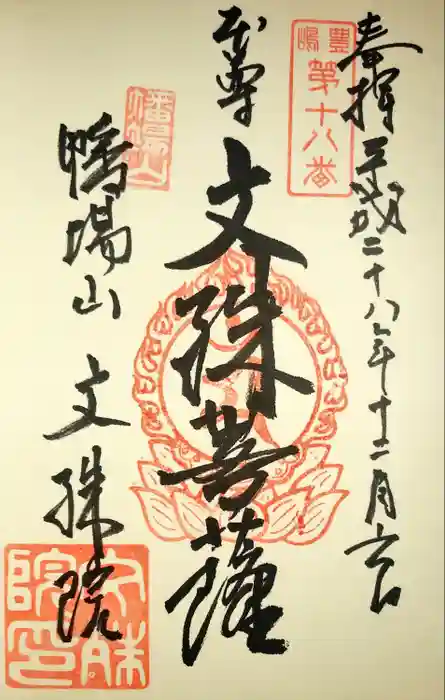 奉拝 平成二十八年十二月六日
豊嶋
第十八番
本尊
文殊菩薩
幡場山
幡場山 文殊院
文殊院印